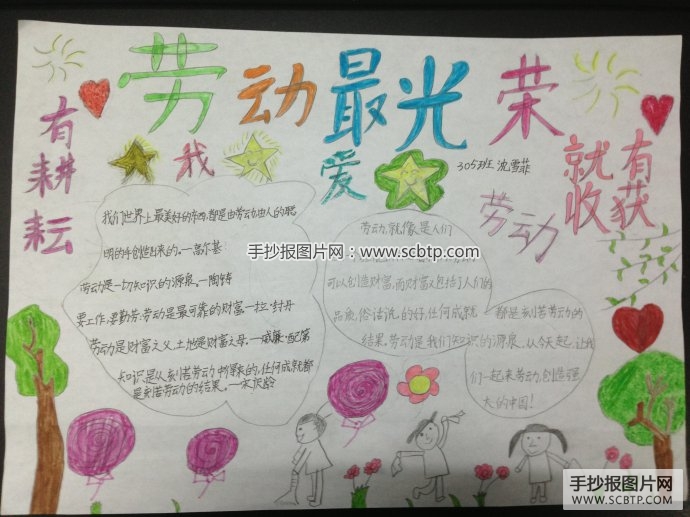 劳动最光荣
有耕耘
就有收获
我爱劳动
305班 沈雪菲
我们世界上最美好的东西,都是由劳动,由人的聪
明的手创造出来的。—高尔基
劳动是一切知识的源泉。—陶铸
要工作,要勤劳:劳动是最可靠的财富—拉·封丹
劳动是财富之父,土地是财富之母。—威廉·配第
知识是从刻苦劳动中得来的,任何成就都
是刻苦劳动的结果。—宋庆龄
劳动,就像是人们
可以创造财富,而财富又包括了人们的
品质,俗话说的好,任何成就
都是刻苦劳动的
结果。劳动是我们知识的源泉
从今天起,让我
们一起来劳动,创造强
大的中国!
手抄报图片网:www.scbtp.com
手抄报图片网
WWW.SCBTP.COM